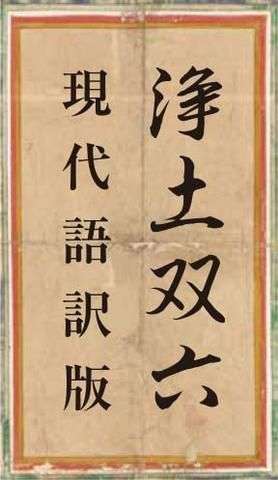 浄土双六
現代語訳版